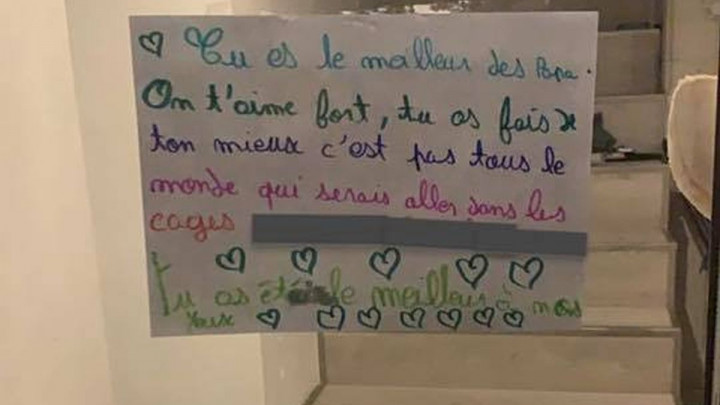 Tu es le mailleur des Papa.
On t'aime fort, tu as fais de
ton mieux c'est pas tous le
monde qui serais aller dans les
cages
Tu as été le meilleur à nos
Yeux